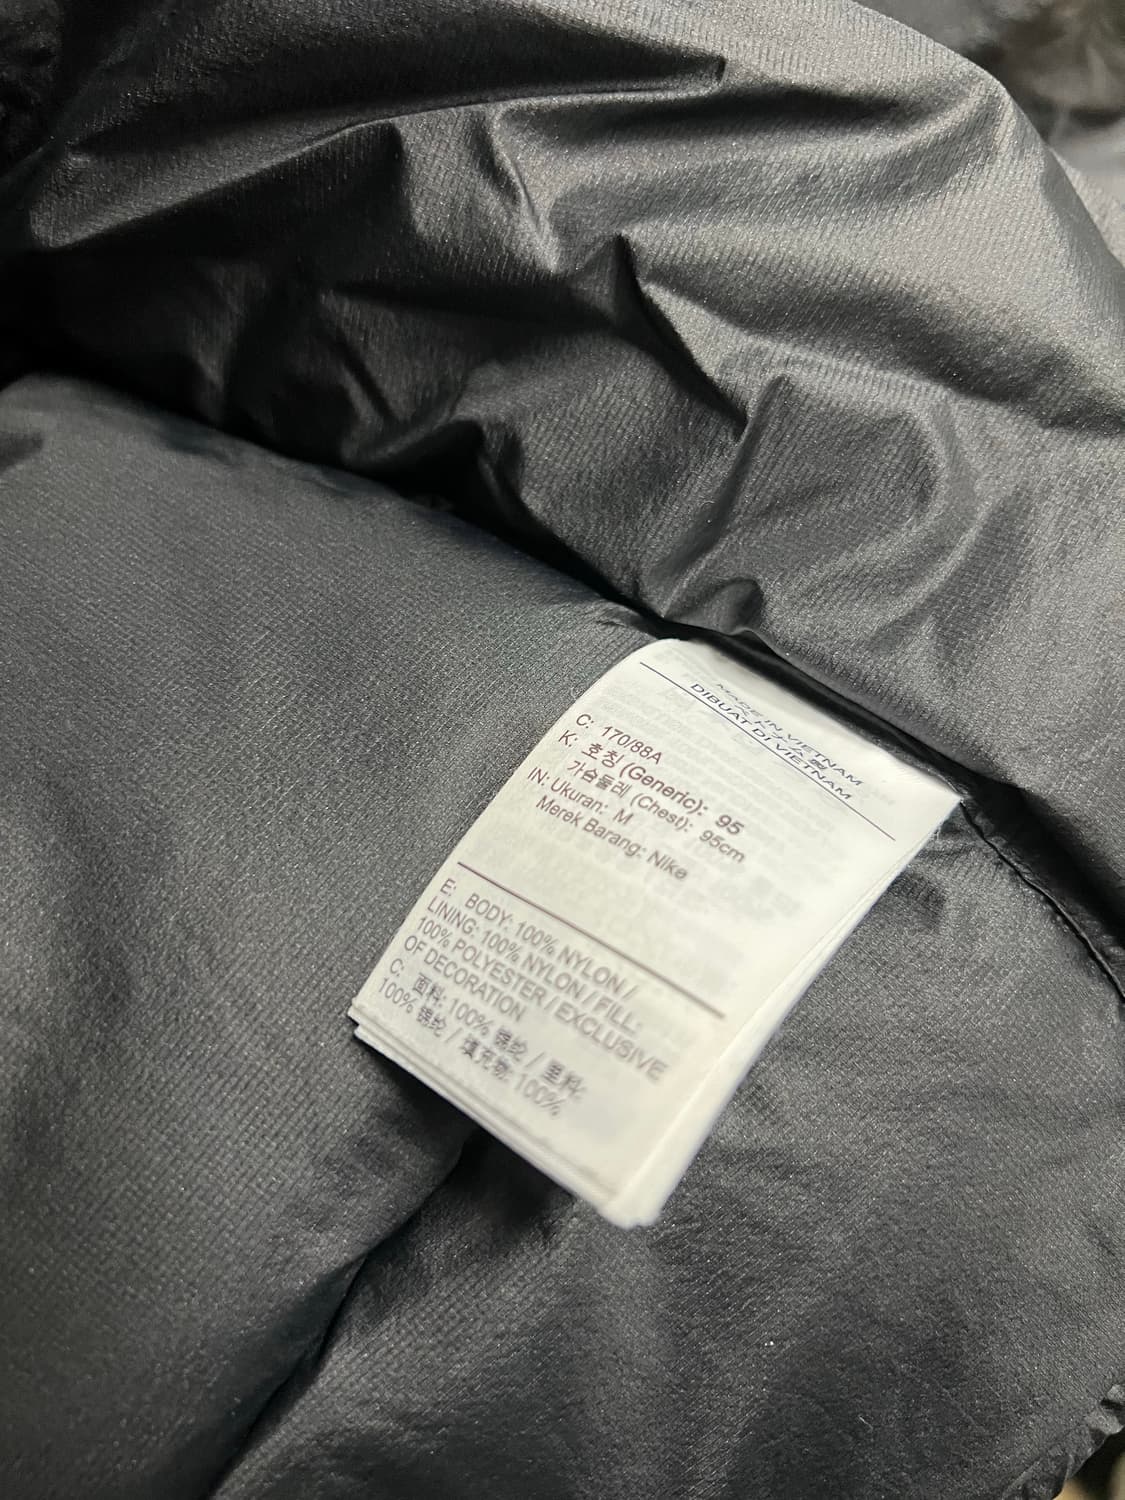 MADE IN VIETNAM
DIBUAT DI VIETNAM
C: 170/88A
K: 호칭 (Generic): 95
가슴둘레 (Chest): 95cm
IN: Ukuran: M
Merek Barang: Nike
E: BODY: 100% NYLON /
LINING: 100% NYLON / FILL:
100% POLYESTER / EXCLUSIVE
OF DECORATION
C: 面料: 100% 锦纶 / 里料:
100% 锦纶 / 填充物: 100%